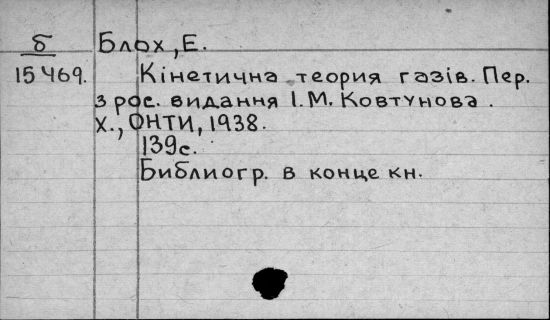 б Блох, Е.
15469. Кінетична теория газів. Пер.
з рос. видання І.М. Ковтунова.
Х., ОНТИ, 1938.
139с.
Библиогр. в конце кн.